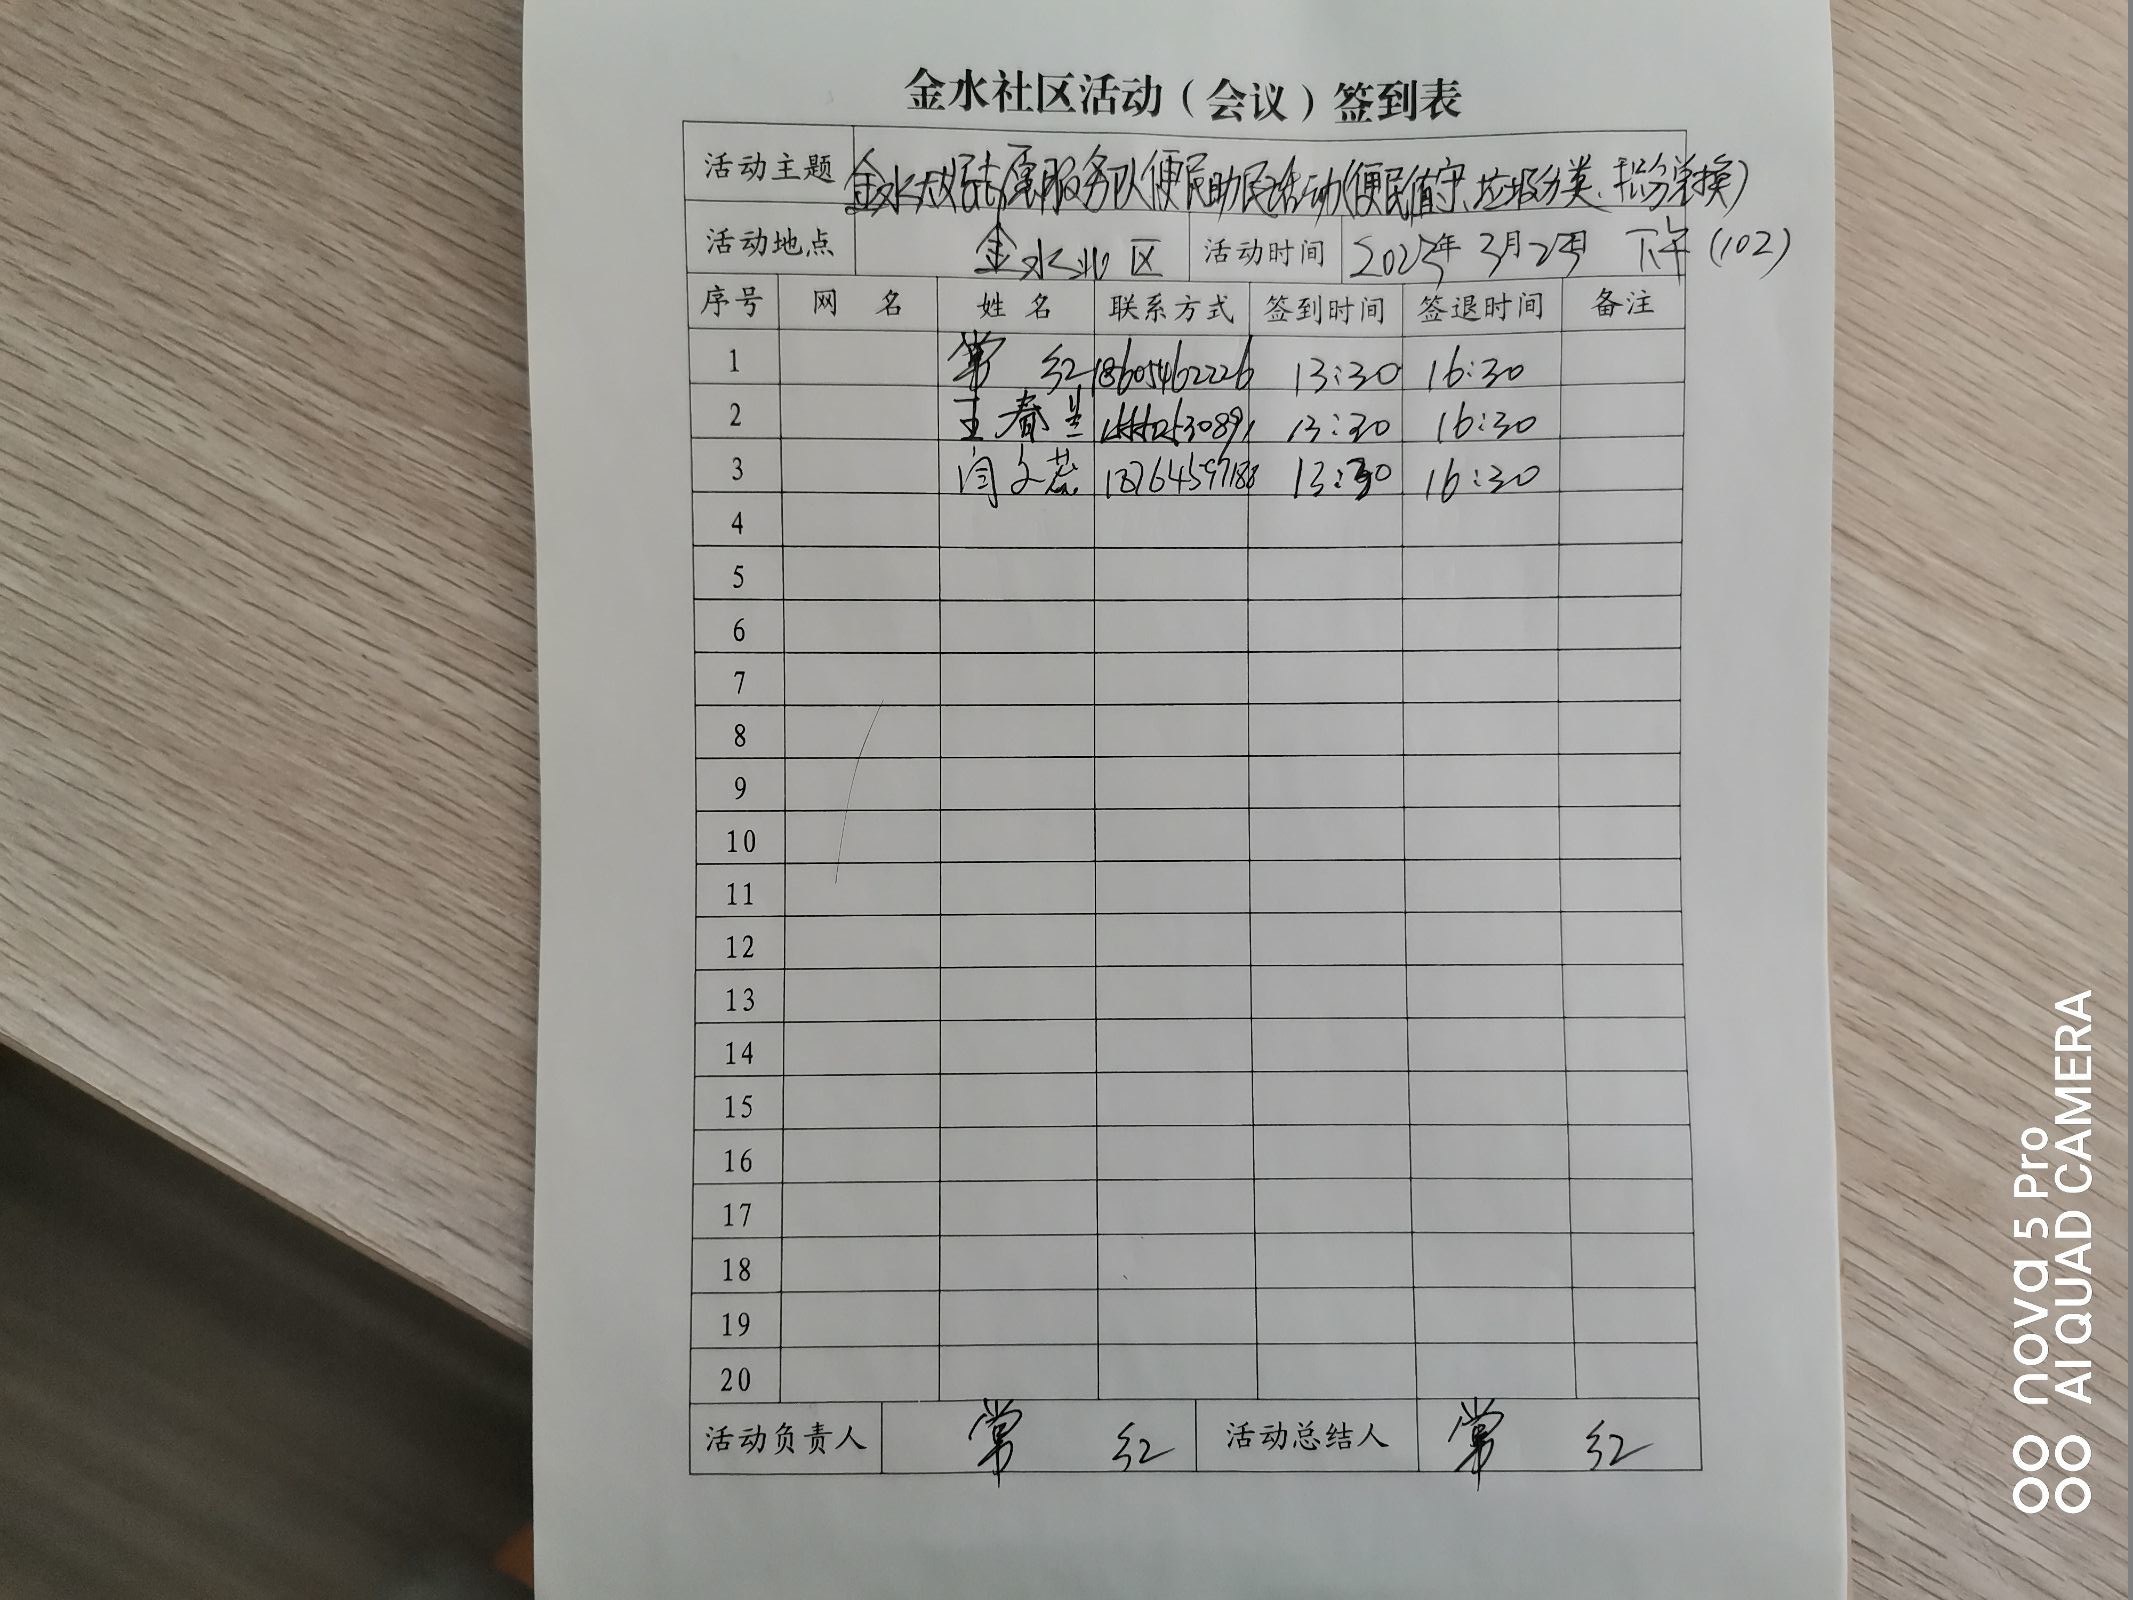 金水社区活动（会议）签到表
活动主题 金水大姐志愿服务队便民助民活动(便民值守、垃圾分类、积分兑换)
活动地点 金水北区 活动时间 2025年3月25日 下午(102)
序号 网 名 姓 名 联系方式 签到时间 签退时间 备注
1 常 红 18605462226 13:30 16:30
2 王春兰 13:30 16:30
3 闫文蕊 13764597188 13:30 16:30
4
5
6
7
8
9
10
11
12
13
14
15
16
17
18
19
20
活动负责人 常 红 活动总结人 常 红
nova 5 Pro
AI QUAD CAMERA